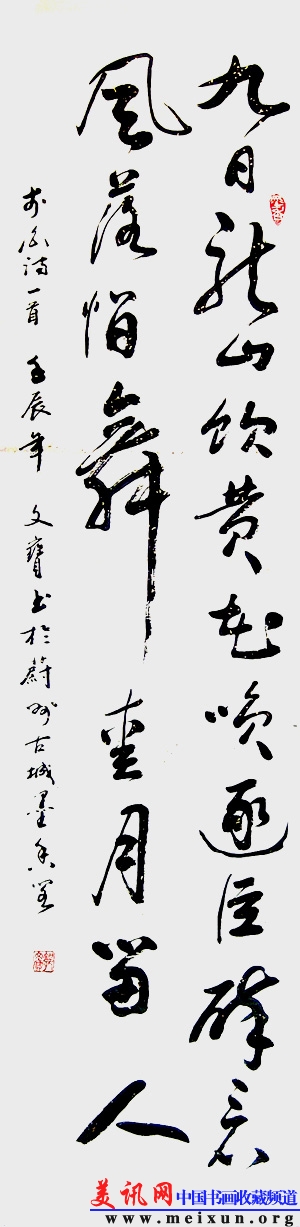 九日龙山饮黄花咲逐臣醉看
风落帽舞爱月留人
李白诗一首 壬辰年 文寶书於蔚州古城墨香
美讯网 中国书画收藏频道
www.meixun.org